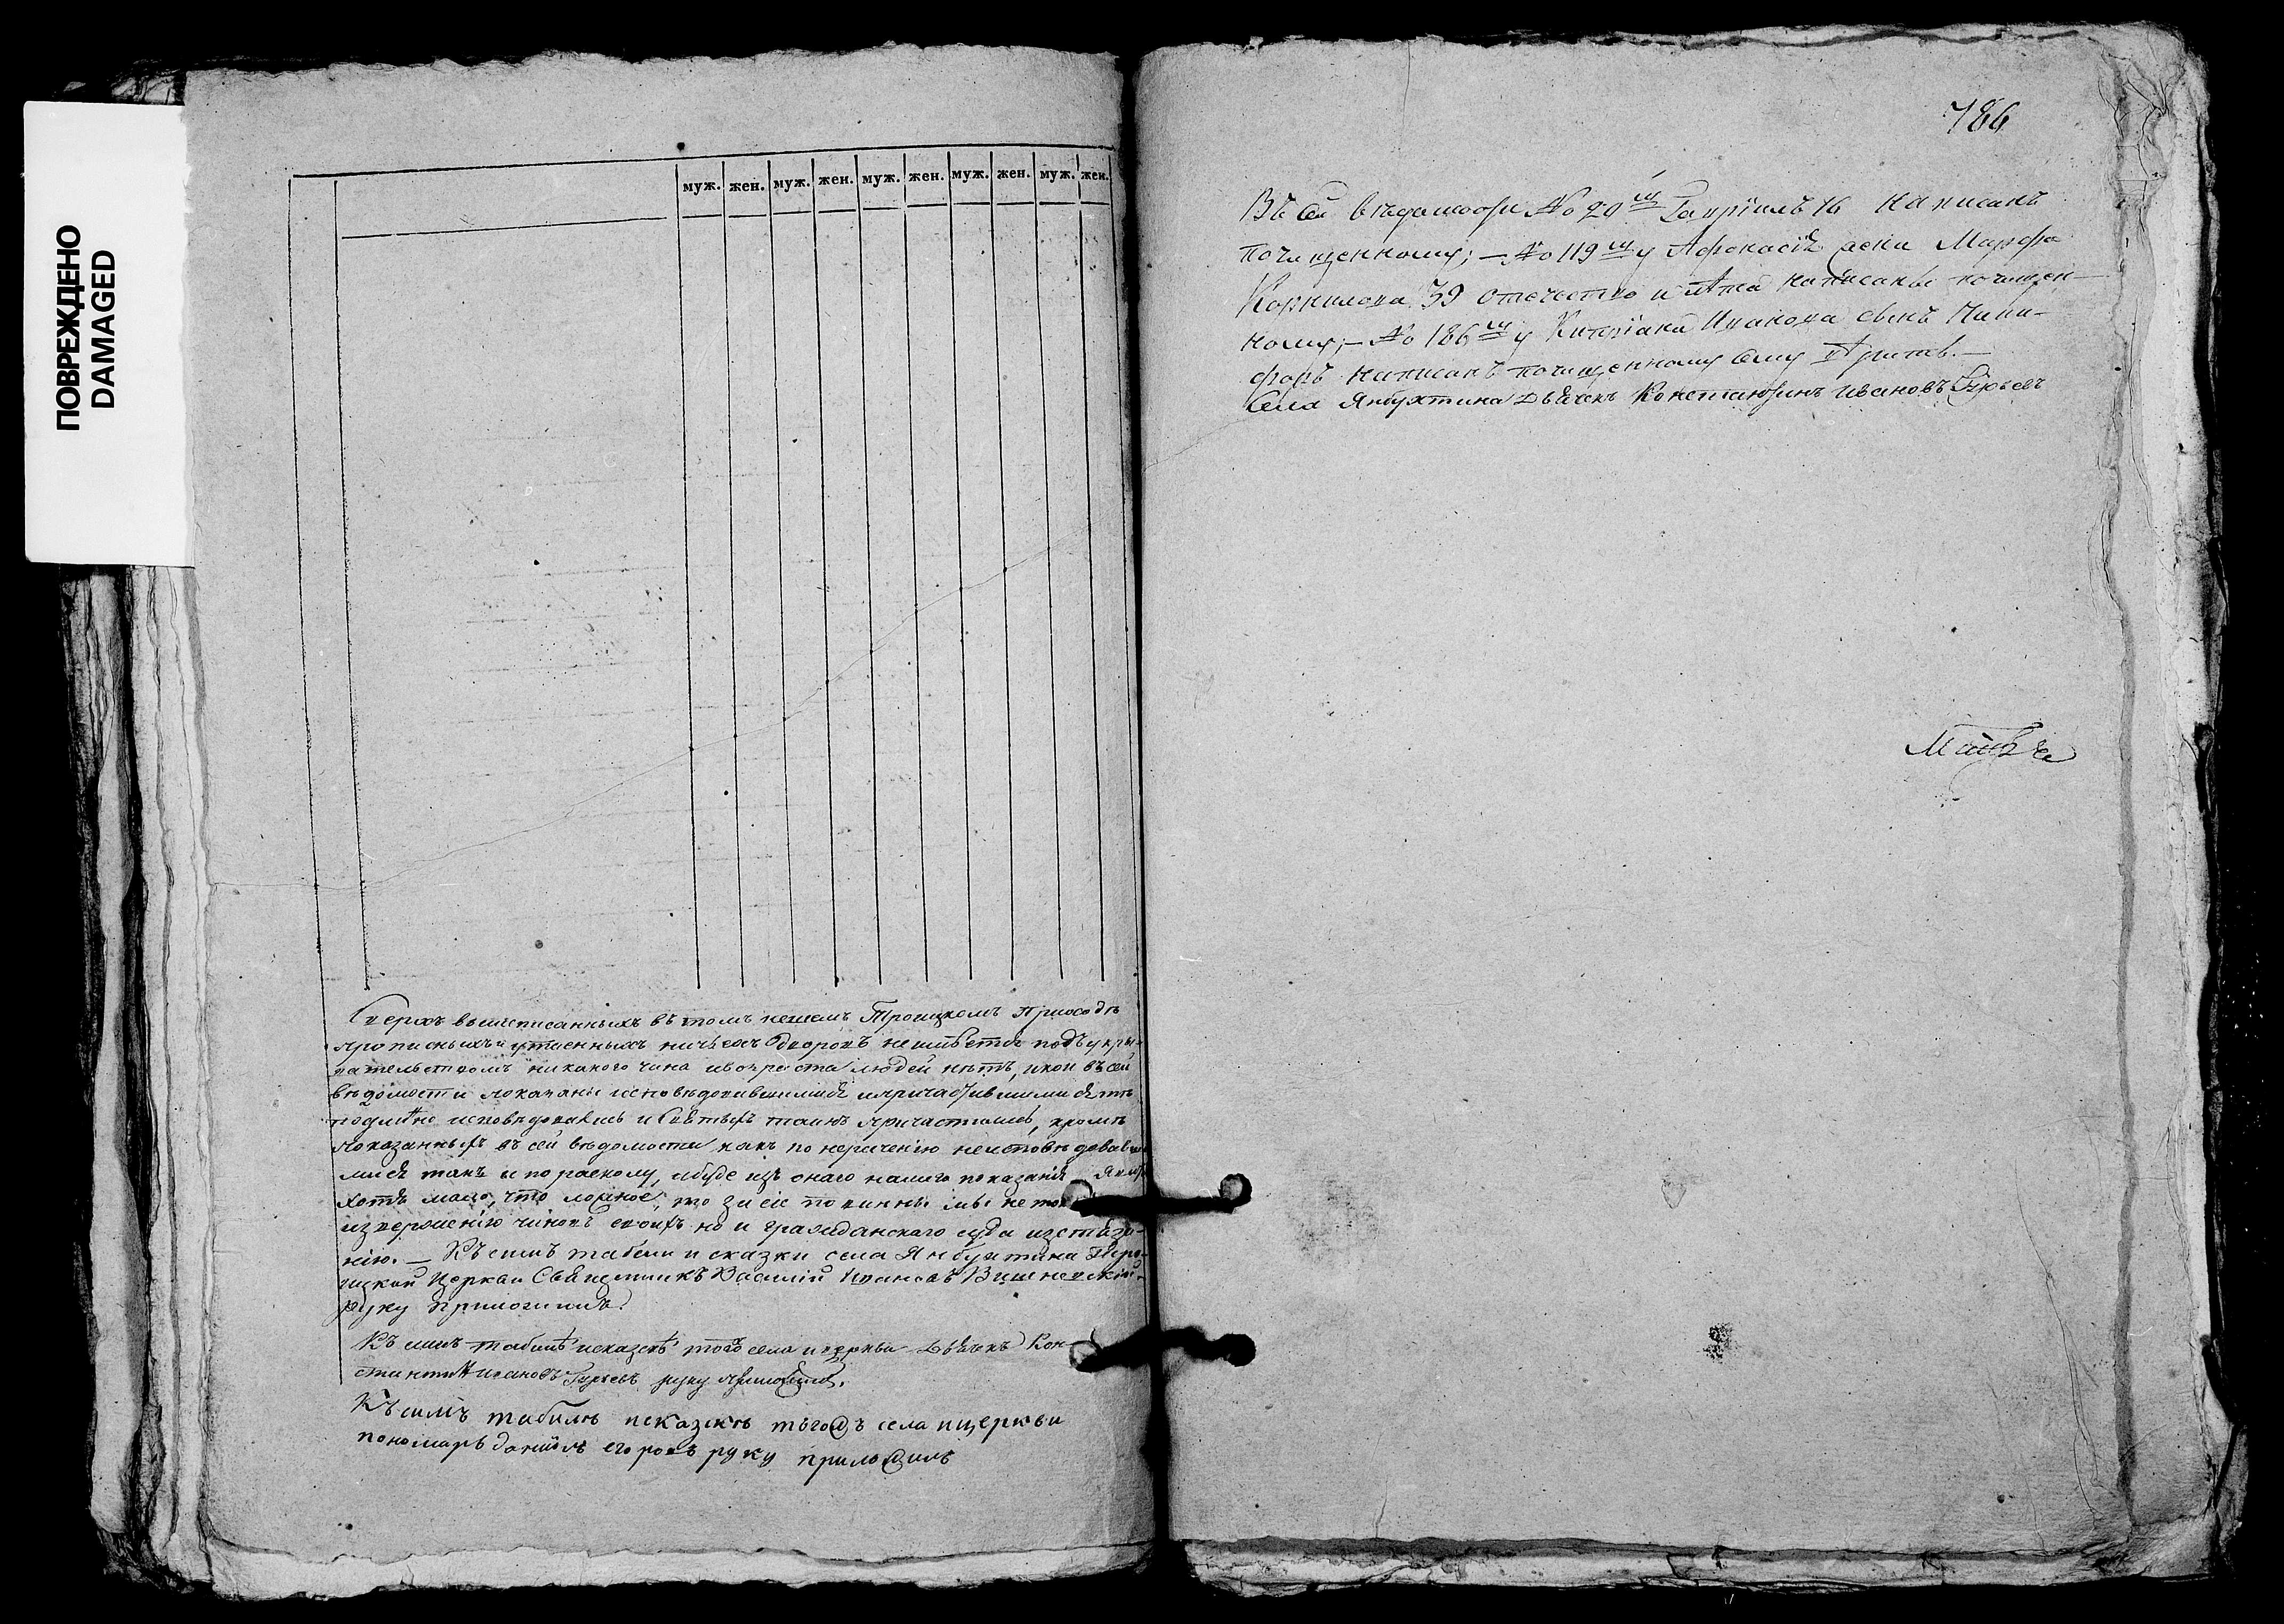 ПОВРЕЖДЕНО
DAMAGED
муж. жен. муж. жен. муж. жен. муж. жен. муж. жен.
Сверхъ вышеписанныхъ въ томъ нашемъ Троицкомъ приходѣ
прописныхъ и утаенныхъ ничьихъ дворовъ неимѣется подъ укры-
вательствомъ никакого чина и возраста людей нѣтъ, и кои въ сей
вѣдомости показаны исповѣдовавшимися и причастившимися тѣ
подлинно исповѣдовались и святыхъ таинъ причастились, кромѣ
показанныхъ въ сей вѣдомости какъ по нерачению неисповѣдовав
мися такъ и по расколу, и буде изъ онаго нашего показанія
хотя мало, что ложное, то за сіе повинны мы не
извержению чиновъ своихъ но и гражданскаго суда изстяза-
нию. — Къ симъ табели и сказки села Янбухтина Тро-
ицкой Церкви Священникъ Василий Ивановъ Вишневский
руку приложилъ.
Къ симъ табелѣ и сказкѣ того села и церкви дьячекъ Кон-
стантинъ Ивановъ Гурьевъ руку приложилъ.
Къ симъ табилѣ исказкѣ тогожъ села ицеркви
пономарь данiилъ егоровъ руку приложилъ
786
Въ сей вѣдомости No 20й Гаврiилъ 16 написанъ
почищенному; — No 119му Афонасія жена Марфа
Корнилова 39 отечество и лѣта написаны почищен-
ному; — No 186му Иванова сынъ Ники-
форъ написанъ почищенному
Села Янбухтина дьячекъ Константинъ Ивановъ Гурьевъ